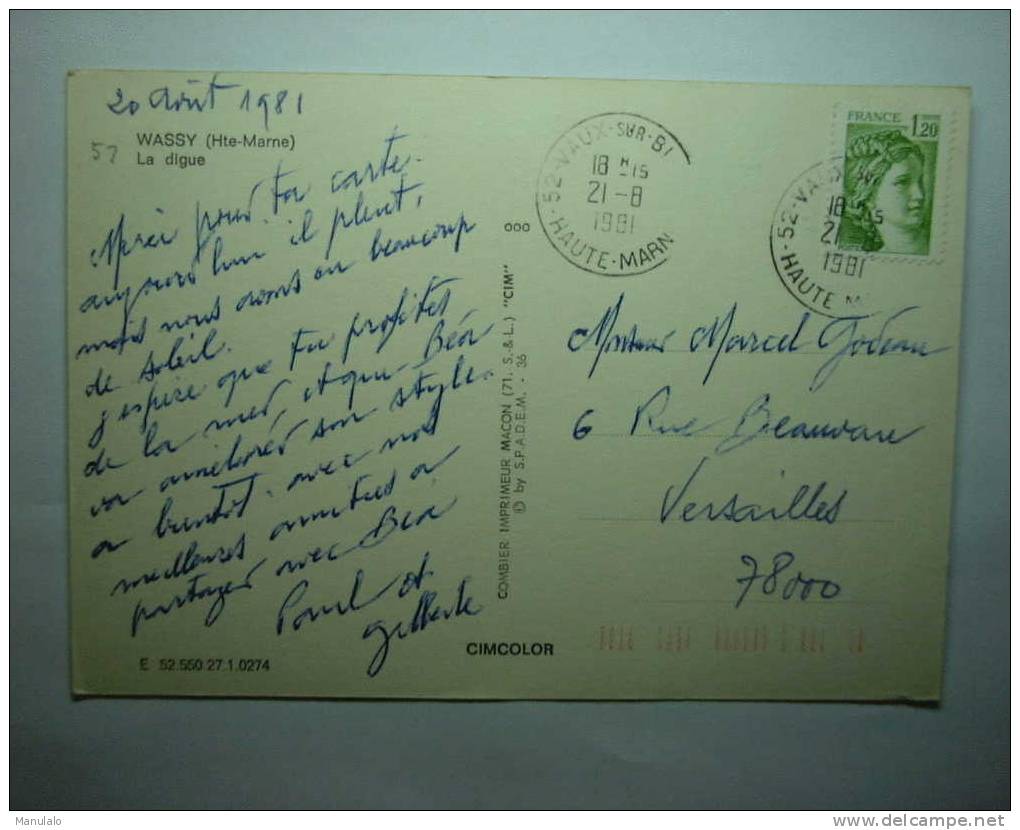 20 août 1981
WASSY (Hte-Marne)
La digue
52
Merci pour ta carte.
aujourd'hui il pleut,
mais nous avons eu beaucoup
de soleil.
J'espère que tu profites
de la mer, et que Béa
va améliorer son style.
a bientôt. avec nos
meilleures amitiés a
partager avec Béa
Paul et
Gilberte
E 52.550 27.1.0274
ooo
COMBIER IMPRIMEUR MACON (71. S.&L.) "CIM"
© by S.P.A.D.E.M. - 36
CIMCOLOR
52-VAUX-SUR-BL
18 H 15
21-8
1981
HAUTE-MARN
FRANCE
1,20
52-VAUX
18 H 15
21-8
1981
HAUTE-M
Monsieur Marcel Godeau
6 Rue Beauvau
Versailles
78000
Manulalo
http://www.delcampe.net